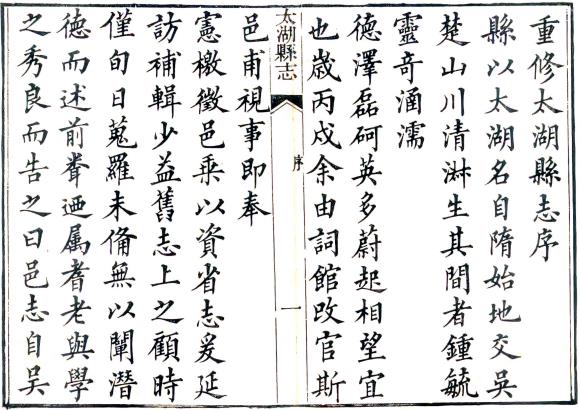 重修太湖縣志序
縣以太湖名自隋始地交吳
楚山川清淋生其間者鍾毓
靈奇涵濡
德澤磊砢英多蔚起相望宜
也歲丙戍余由詞館改官斯
太湖縣志
序
一
邑甫視事即奉
憲檄徵邑乘以資省志爰延
訪補輯少益舊志上之顧時
僅旬日蒐羅未僃無以闡潛
德而述前耇迺属耆老與學
之秀良而告之曰邑志自吳